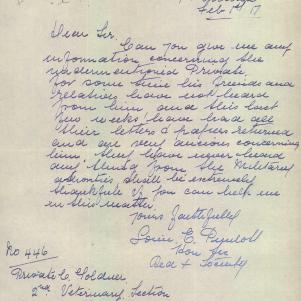 Feb 1st 17
Dear Sir.
Can you give me any
information concerning the
undermentioned Private.
For some time his friends and
relatives have not heard
from him and this last
two weeks have had all
their letters & papers returned
and are very anxious concerning
him, they have never heard
any thing from the Military
authorities shall be extremely
thankful if you can help me
in this matter.
Yours faithfully
E.
Hon Sec
Red + Society
No 446
Private C. Goldner
2nd Veterinary Section